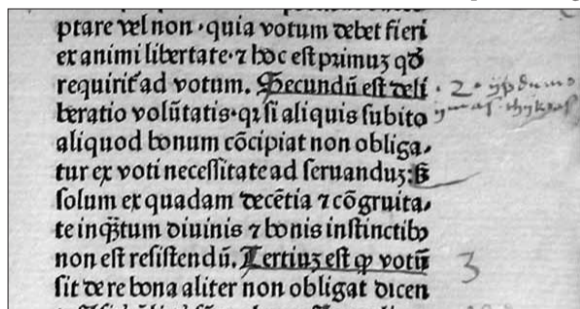 ptare vel non · quia votum debet fieri
ex animi libertate · ⁊ hoc est primuʒ qđ
requirit᷑ ad votum. Secundū est deli
beratio volūtatis · qꝛ si aliquis subito
aliquod bonum cōcipiat non obliga-
tur ex voti necessitate ad seruanduʒ: ß
solum ex quadam decētia ⁊ cōgruita-
te inqꝫtum diuinis ⁊ bonis instinctibꝰ
non est resistendū. Tertiuʒ est ꝙ votū
sit de re bona aliter non obligat dicen
· 2 ·
3